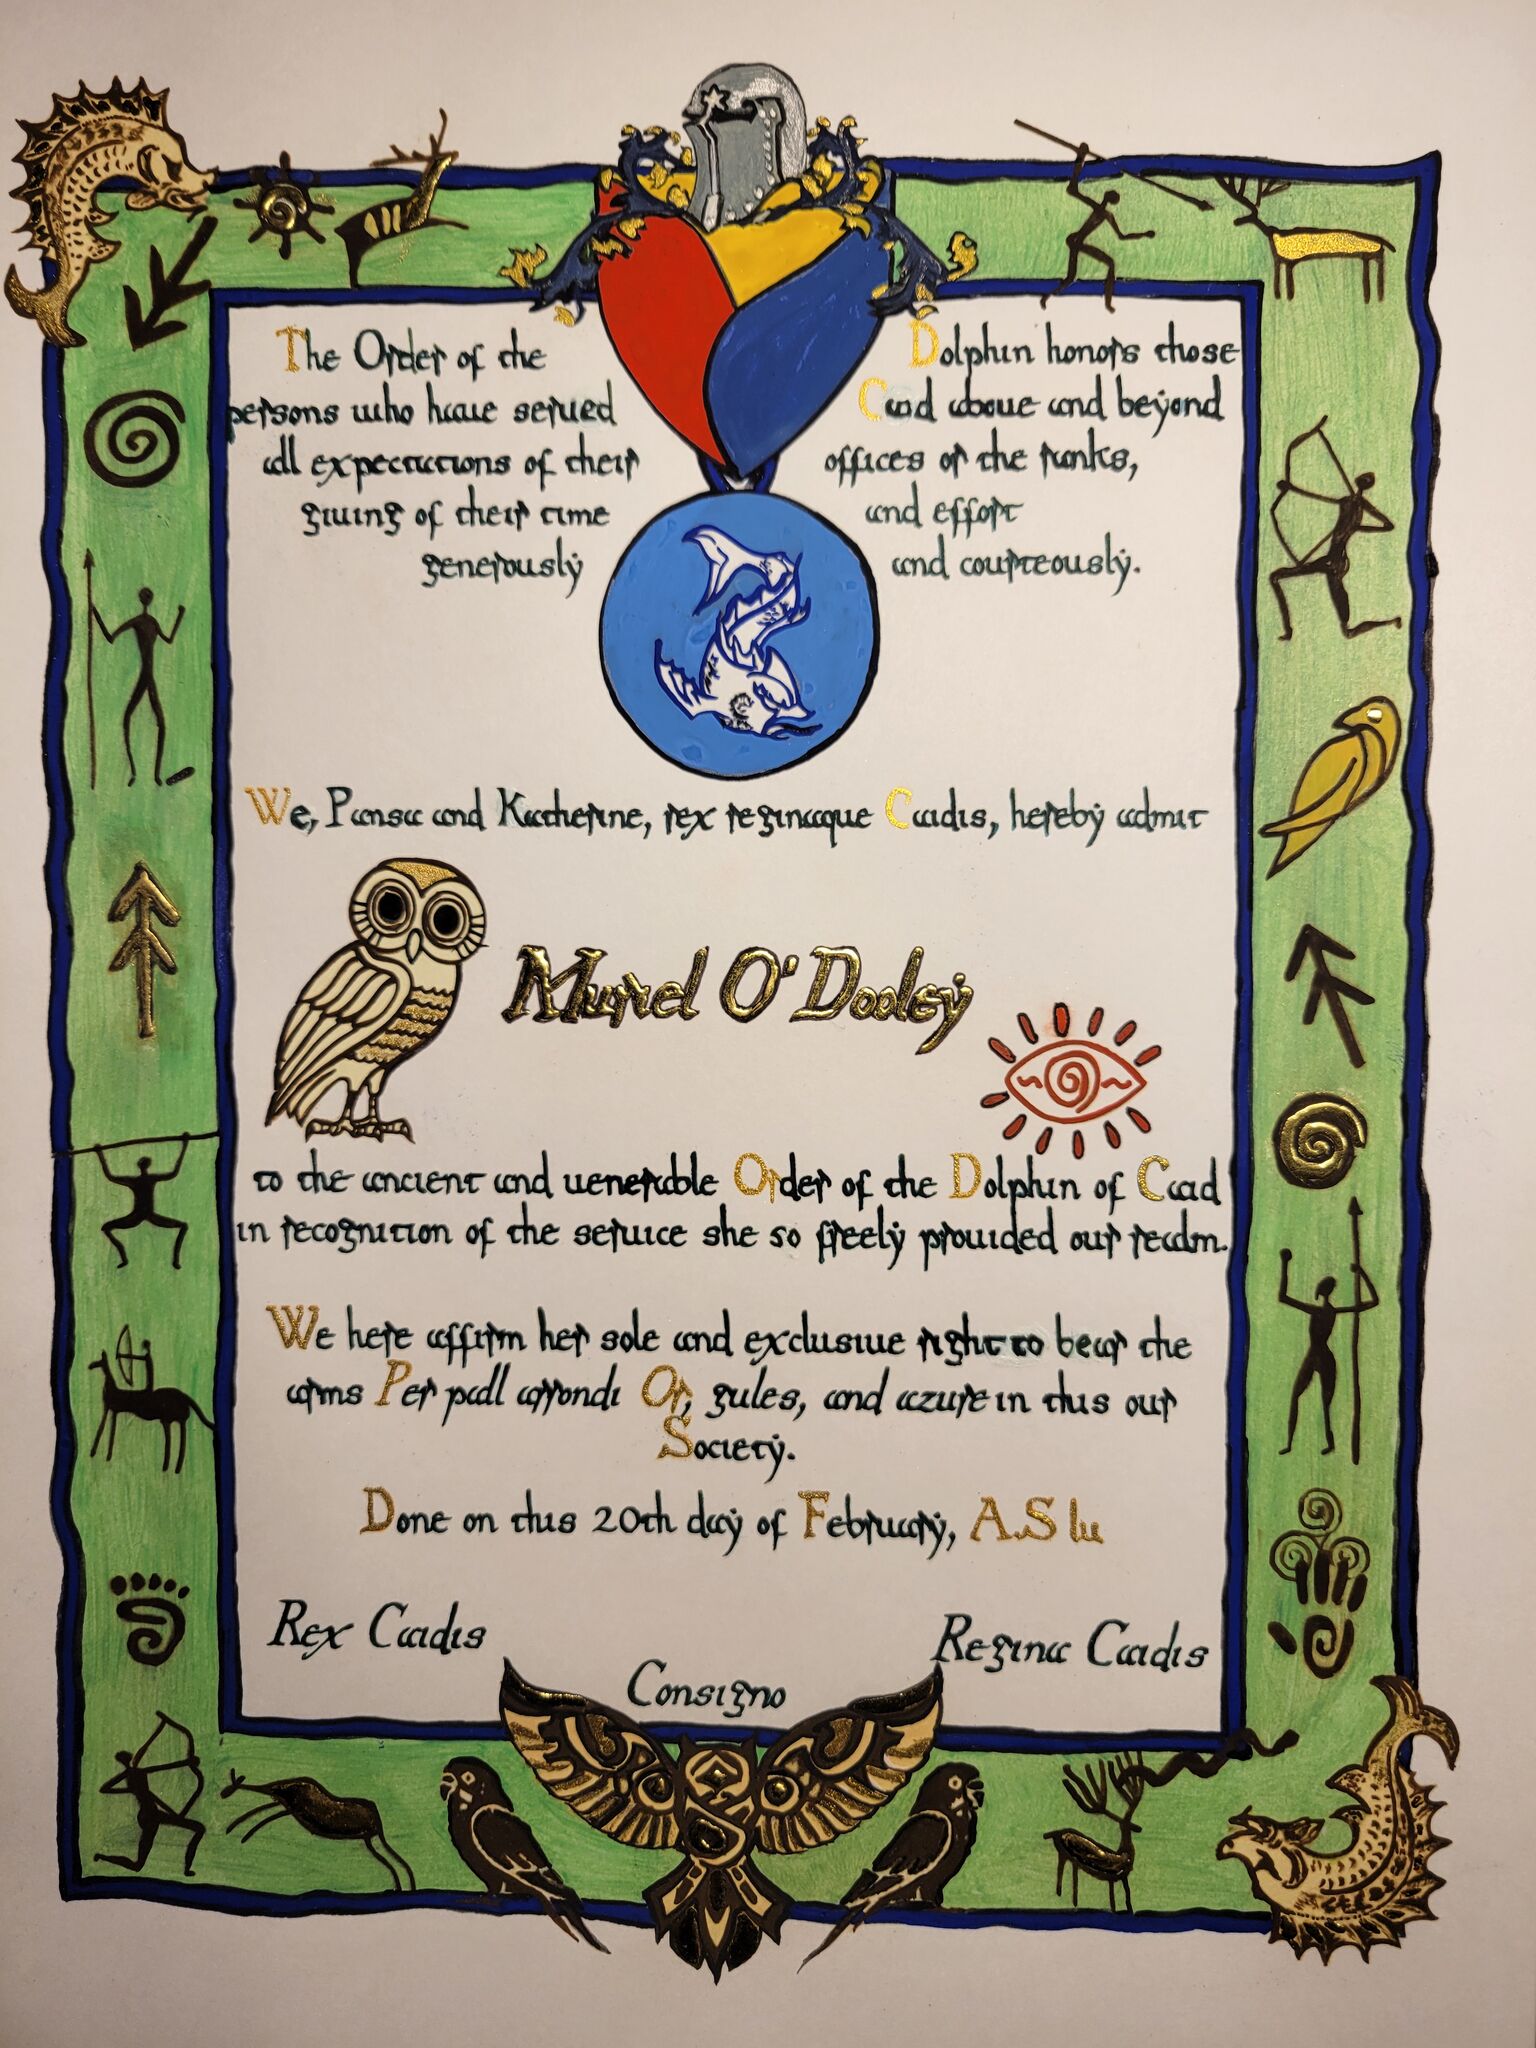 The Order of the Dolphin honors those
persons who have served Caid above and beyond
all expectations of their offices or the ranks,
giving of their time and effort
generously and courteously.
We, Pansa and Katherine, rex reginaque Caidis, hereby admit
Muriel O'Dooley
to the ancient and venerable Order of the Dolphin of Caid
in recognition of the service she so freely provided our realm.
We here affirm her sole and exclusive right to bear the
arms Per pall arrondi Or, gules, and azure in this our
Society.
Done on this 20th day of February, A.S lv
Rex Caidis
Regina Caidis
Consigno